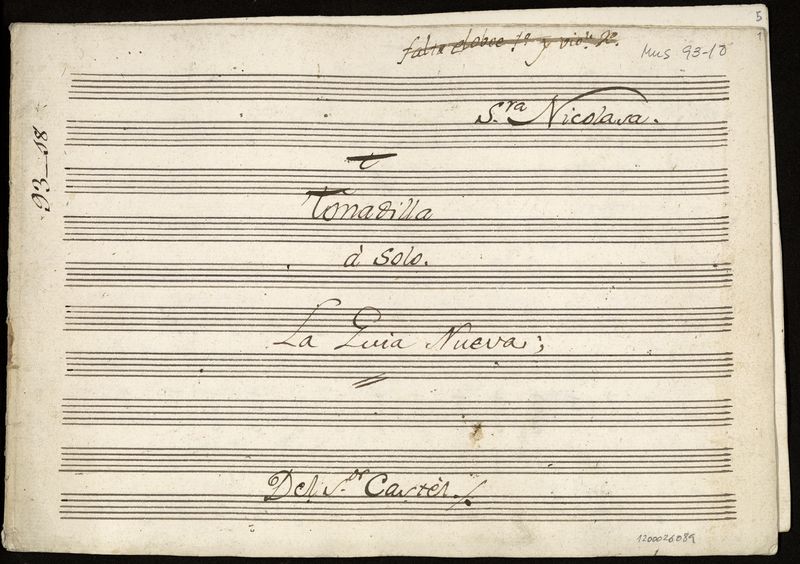 5
1
falta el oboe 1º y violⁿ 2º.
Mus 93-18
S.ra Nicolasa.
93-18
t
Tonadilla
à Solo.
La Guia Nueva;
Del S.or Castèl./.
1200026089
1